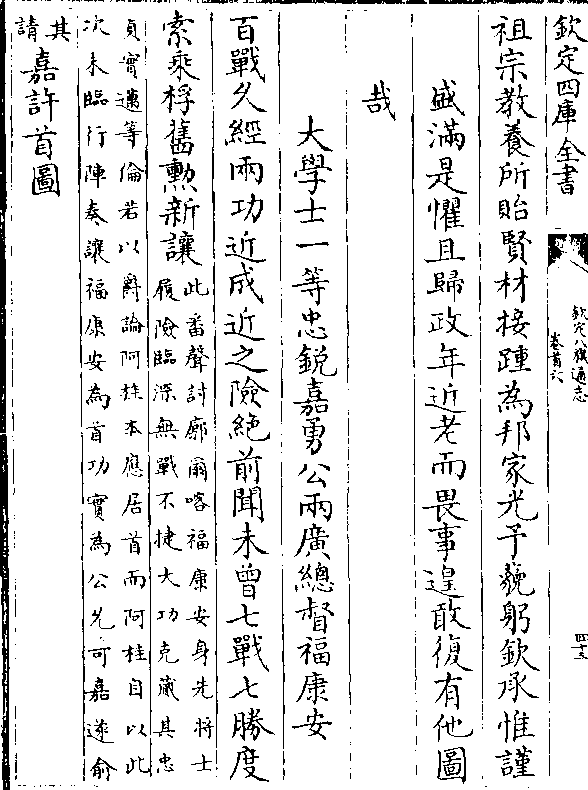 欽定四庫全書
欽定八旗通志
卷首六
四十三
祖宗教養所貽賢材接踵為邦家光予藐躬欽承惟謹
盛滿是懼且歸政年近老而畏事遑敢復有他圖
哉
大學士一等忠銳嘉勇公兩廣總督福康安
百戰久經兩功近成近之險絶前聞未曾七戰七勝度
索乘桴舊勲新讓
此番聲討廓爾喀福康安身先將士
履險臨深無戰不捷大功克蕆其忠
貞實邁等倫若以爵論阿桂本應居首而阿桂自以此
次未臨行陣奏讓福康安為首功實為公允可嘉遂俞
其
請
嘉許首圖